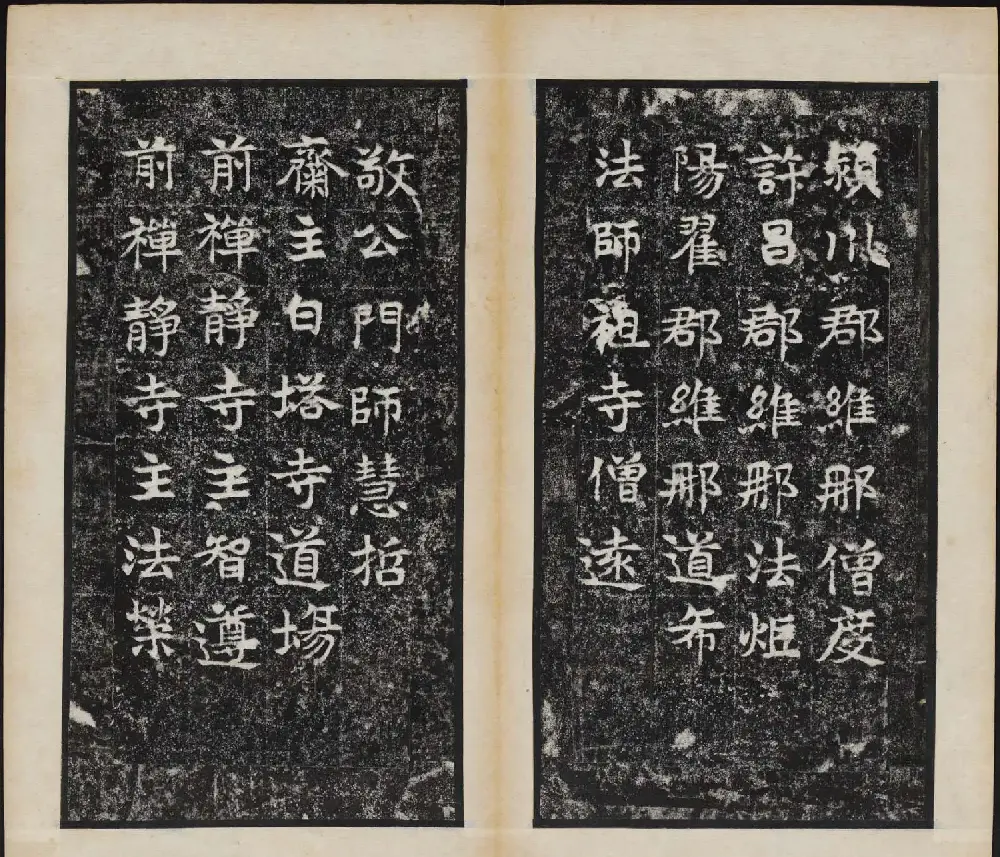 潁川郡維那僧度
許昌郡維那法炬
陽翟郡維那道布
法師祖寺僧遠
敬公門師慧哲
齋主白塔寺道場
前禪靜寺主智遵
前禪靜寺主法榮